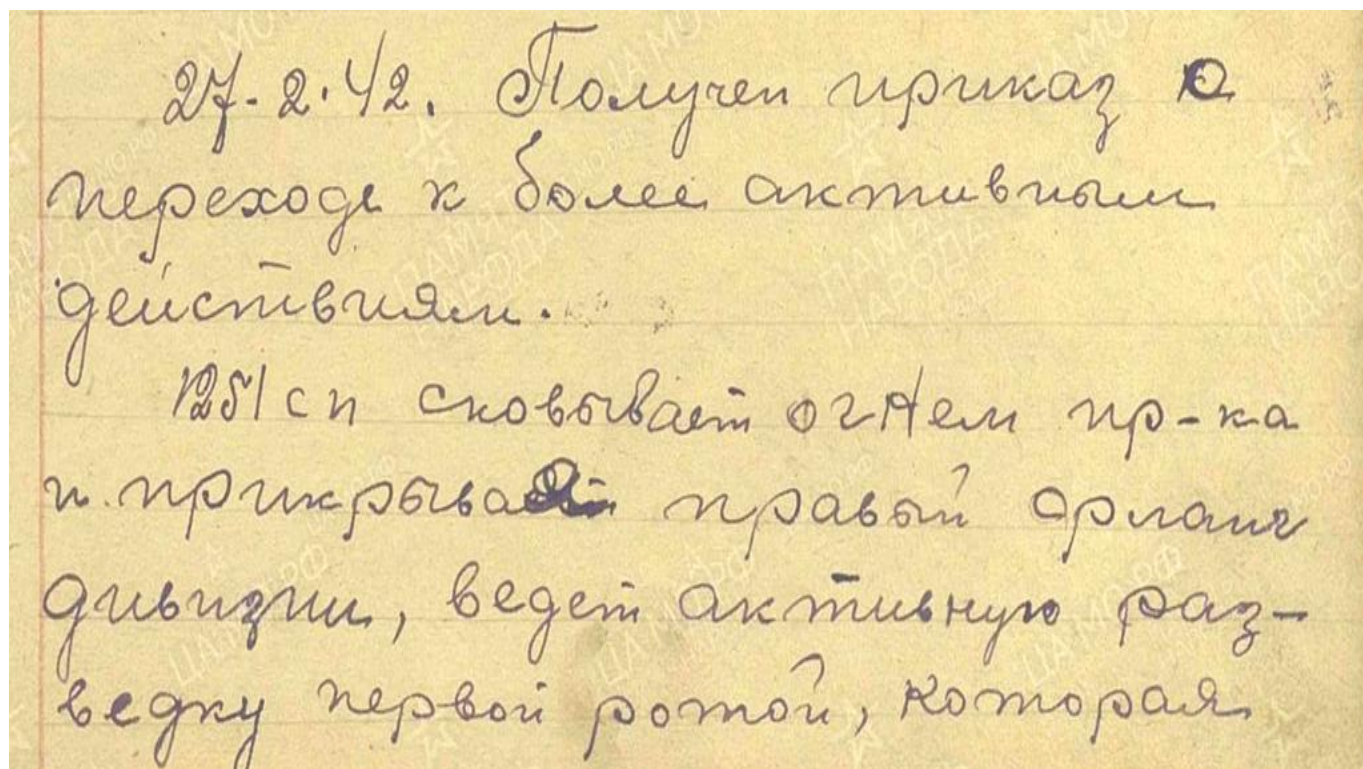 27.2.42. Получен приказ о
переходе к более активным
действиям.
1251 сп сковывает огнем пр-ка
и прикрывает правый фланг
дивизии, ведет активную раз-
ведку первой ротой, которая